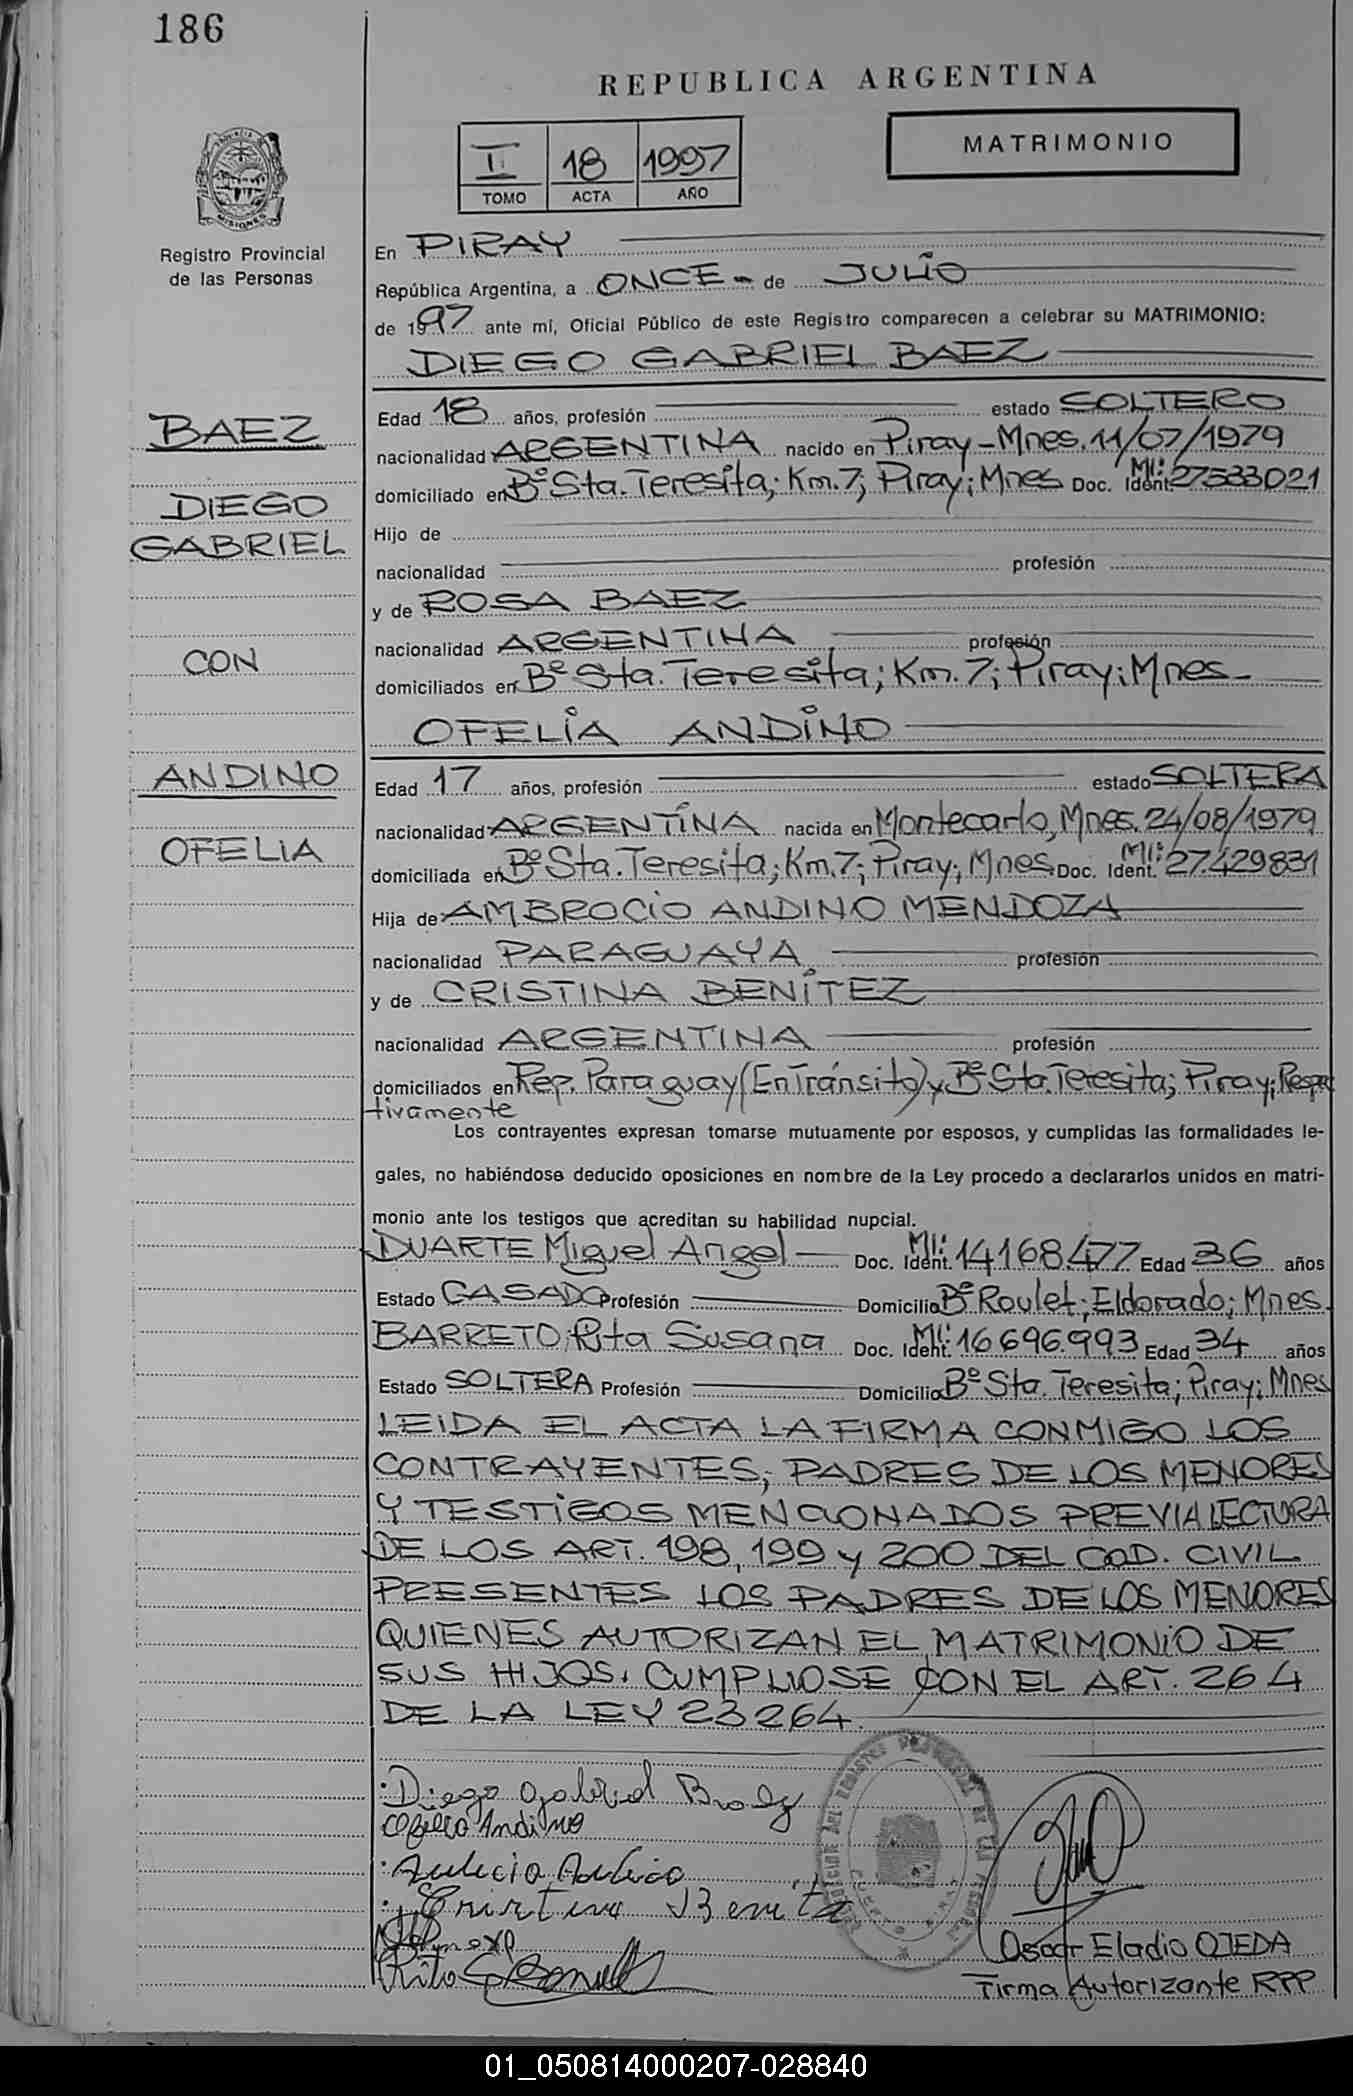 186
REPUBLICA ARGENTINA
I 18 1997
TOMO ACTA AÑO
MATRIMONIO
PROVINCIA
MISIONES
Registro Provincial
de las Personas
En PIRAY
República Argentina, a ONCE - de JULIO
de 1997 ante mí, Oficial Público de este Registro comparecen a celebrar su MATRIMONIO:
DIEGO GABRIEL BAEZ
BAEZ
DIEGO
GABRIEL
CON
ANDINO
OFELIA
Edad 18 años, profesión estado SOLTERO
nacionalidad ARGENTINA nacido en Piray - Mnes. 11/07/1979
domiciliado en Bº Sta. Teresita; Km. 7; Piray; Mnes Doc. Ident. MI: 27533021
Hijo de
nacionalidad profesión
y de ROSA BAEZ
nacionalidad ARGENTINA profesión
domiciliados en Bº Sta. Teresita; Km. 7; Piray; Mnes-
OFELIA ANDINO
Edad 17 años, profesión estado SOLTERA
nacionalidad ARGENTINA nacida en Montecarlo, Mnes. 24/08/1979
domiciliada en Bº Sta. Teresita; Km. 7; Piray; Mnes Doc. Ident. MI: 27.429831
Hija de AMBROCIO ANDINO MENDOZA
nacionalidad PARAGUAYA profesión
y de CRISTINA BENÍTEZ
nacionalidad ARGENTINA profesión
domiciliados en Rep. Paraguay (En Tránsito) y Bº Sta. Teresita; Piray; Respec
tivamente
Los contrayentes expresan tomarse mutuamente por esposos, y cumplidas las formalidades le-
gales, no habiéndose deducido oposiciones en nombre de la Ley procedo a declararlos unidos en matri-
monio ante los testigos que acreditan su habilidad nupcial.
DUARTE Miguel Angel Doc. Ident. MI: 14168.477 Edad 36 años
Estado CASADO Profesión Domicilio Bº Roulet; Eldorado; Mnes.
BARRETO Rita Susana Doc. Ident. MI: 16696.993 Edad 34 años
Estado SOLTERA Profesión Domicilio Bº Sta. Teresita; Piray; Mnes
LEIDA EL ACTA LA FIRMA CONMIGO LOS
CONTRAYENTES; PADRES DE LOS MENORES
Y TESTIGOS MENCIONADOS PREVIA LECTURA
DE LOS ART. 198, 199 y 200 DEL COD. CIVIL
PRESENTES LOS PADRES DE LOS MENORES
QUIENES AUTORIZAN EL MATRIMONIO DE
SUS HIJOS. CUMPLIOSE CON EL ART. 264
DE LA LEY 23264.
Diego Gabriel Baez
Ofelia Andino
Cristina Benitez
Rita
Oscar Eladio OJEDA
Firma Autorizante RPP
01_050814000207-028840